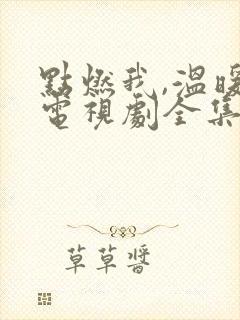 點燃我,溫暖
電視劇全集
草草醬